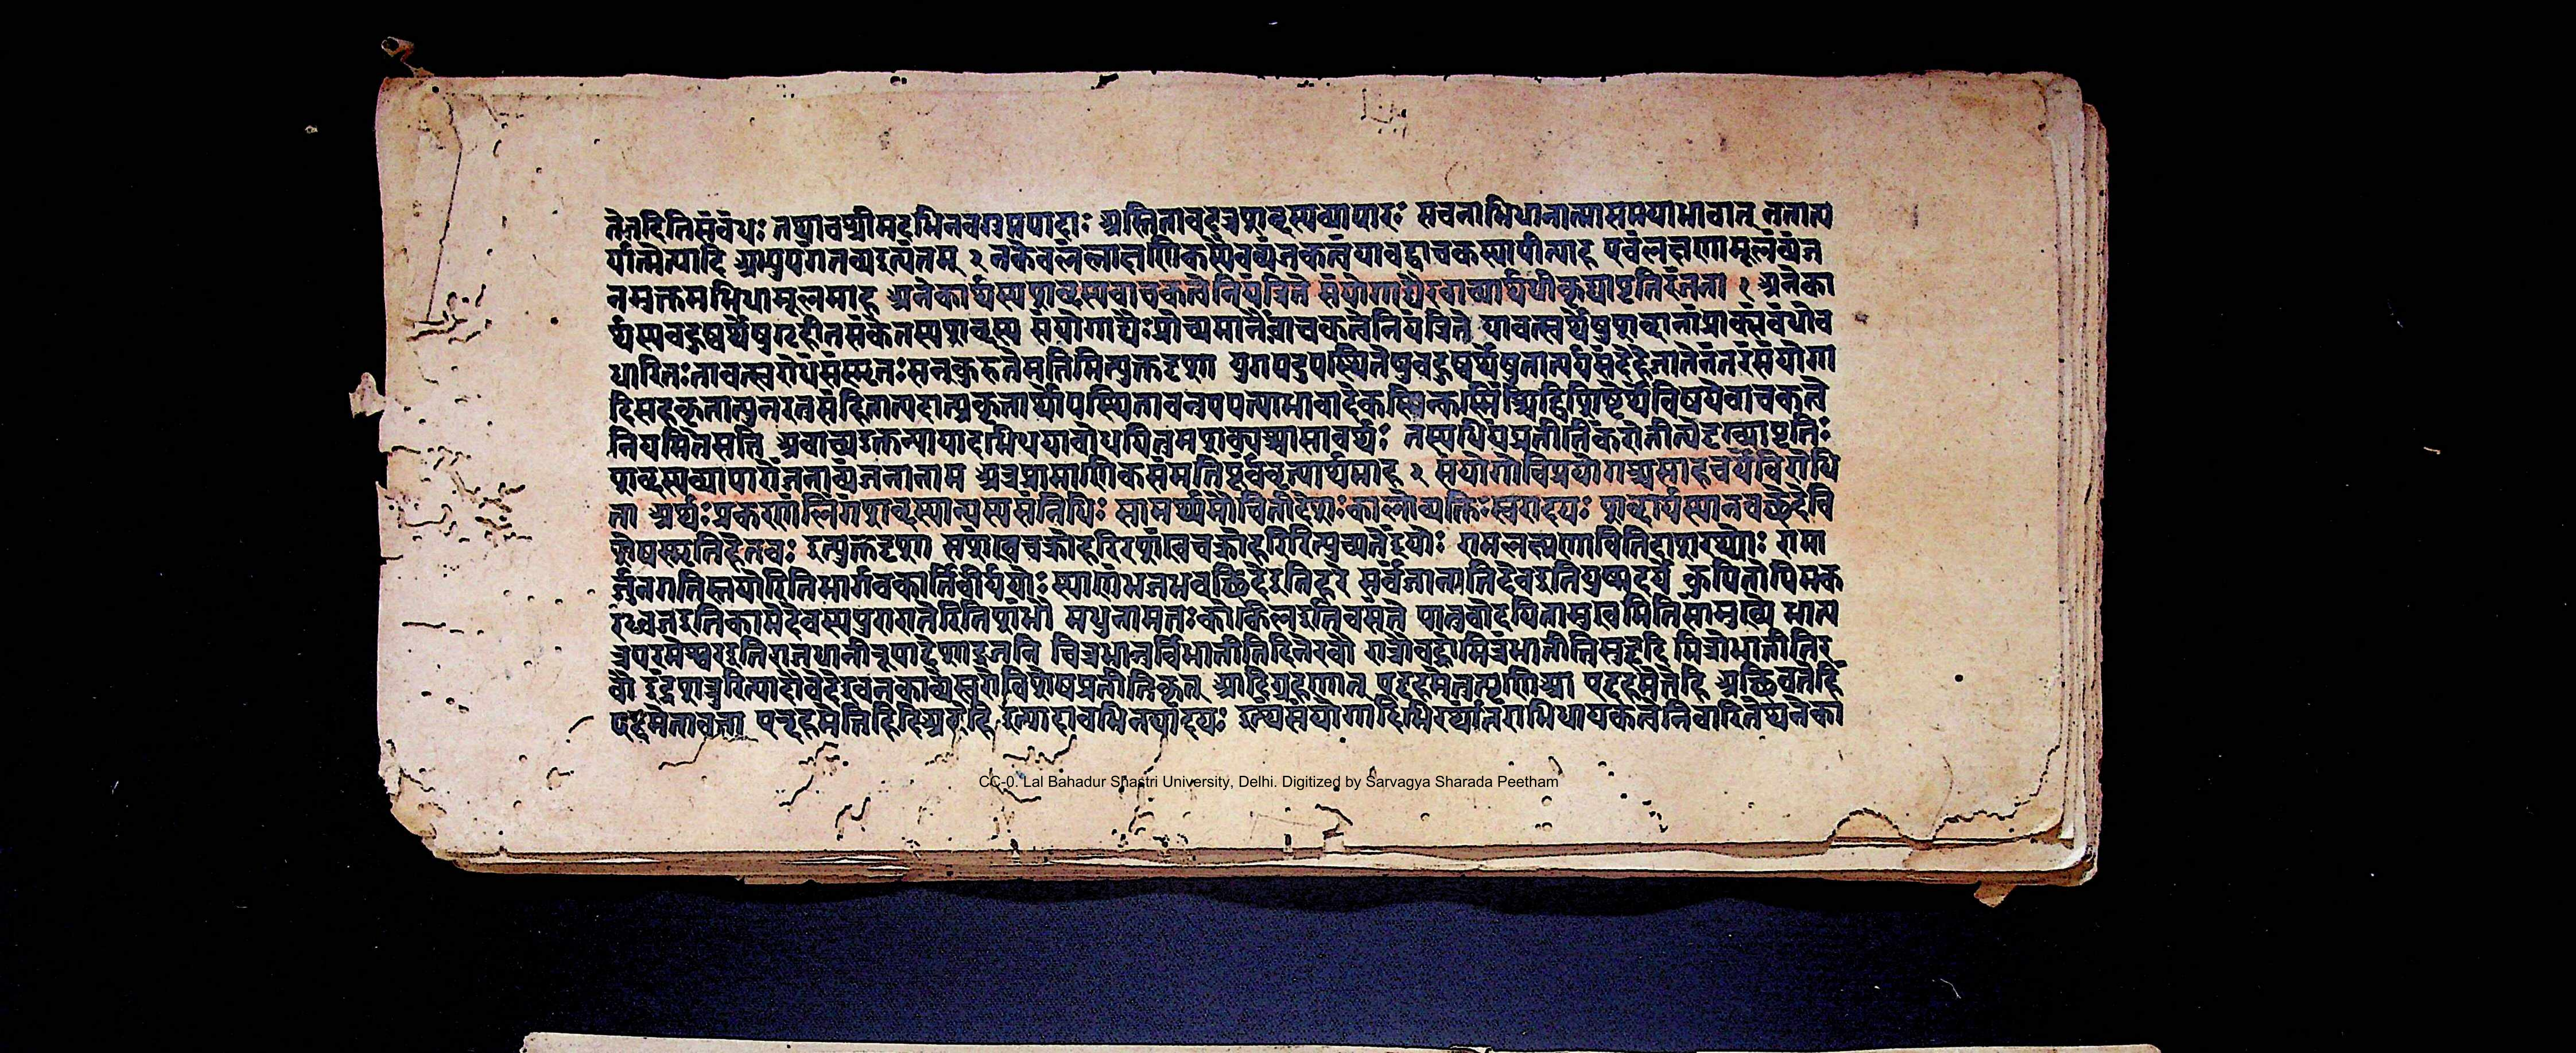 तेनेदितिसंबंधः तथाचश्रीमदभिनवगुप्तपादाः अस्तितावदत्रशब्दस्यव्यापारः सचनाभिधानात्मासमयाभावात् नतात्प
र्यात्मेत्यादि नकेवलंलाक्षणिकस्यैवव्यंजकत्वंयावद्वाचकस्यापीत्याह एवंलक्षणामूलंव्यंज
नमुक्तमभिधामूलमाह अनेकार्थस्यशब्दस्यवाचकत्वेनियंत्रिते संयोगाद्यैरवाच्यार्थधीकृद्व्यापृतिरंजनं १ अनेका
र्थस्यबहुष्वर्थेषुगृहीतसंकेतस्यशब्दस्य संयोगाद्यैःप्रोच्यमानैर्वाचकत्वेनियंत्रिते यावत्स्वर्थेषुशब्दानांप्राक्संबंधोव
धारितःतावत्स्वरोधंसंस्मृतःसन्कुरुतेमतिमित्युक्तदृशा युगपदुपस्थितेषुबहुष्वर्थेषुतात्पर्यसंदेहेजातेनंतरंसंयोगा
दिसहकृतात् एकस्मिन्कस्मिंश्चिद्विशिष्टेर्थेविषयेवाचकत्वे
नियमितेसति अवाच्यउक्तन्यायादभिधयाबोधयितुमशक्यश्चासावर्थः तस्यधियंप्रतीतिंकरोतीत्येदृग्व्यापृतिः
शब्दस्यव्यापारोंजनाव्यंजनानाम अत्रप्रामाणिकसंमतिंपूर्ववृत्त्यार्थमाह २ संयोगोविप्रयोगश्चसाहचर्यंविरोधि
ता अर्थःप्रकरणंलिंगंशब्दस्यान्यस्यसंनिधिः सामर्थ्यमौचितीदेशःकालोव्यक्तिःस्वरादयः शब्दार्थस्यानवच्छेदेवि
शेषस्मृतिहेतवः इत्युक्तदृशा सशंखचक्रोहरिरशंखचक्रोहरिरित्युच्यतेइयोः रामलक्ष्मणावितिदाशरथ्योः रामा
र्जुनगतिस्तयोरितिभार्गवकार्तवीर्ययोः स्थाणुंभजभवच्छिदेइतिहरे सर्वंजानातिदेवइतियुष्मदर्थे कुपितोपिमक
रध्वजइतिकामेदेवस्यपुरारातेरितिशंभौ मधुनामत्तःकोकिलइतिवसंते पातुवोदयितामुखमितिसांमुख्ये भात्य
त्रपरमेश्वरइतिराजधानीरूपाद्देशाद्राजनि चित्रभानुर्विभातीतिदिनेरवौ रात्रौवह्नौमित्रंभातीतिसुहृदि मित्रोभातीतिर
वौ इंद्रशत्रुरित्यादौवेदेएवनकाव्येस्वरोविशेषप्रतीतिकृत् आदिग्रहणात्
इत्यादावभिनयादयः इत्थंसंयोगादिभिरर्थांतराभिधायकत्वेनिवारितेप्यनेका
CC-0. Lal Bahadur Shastri University, Delhi. Digitized by Sarvagya Sharada Peetham